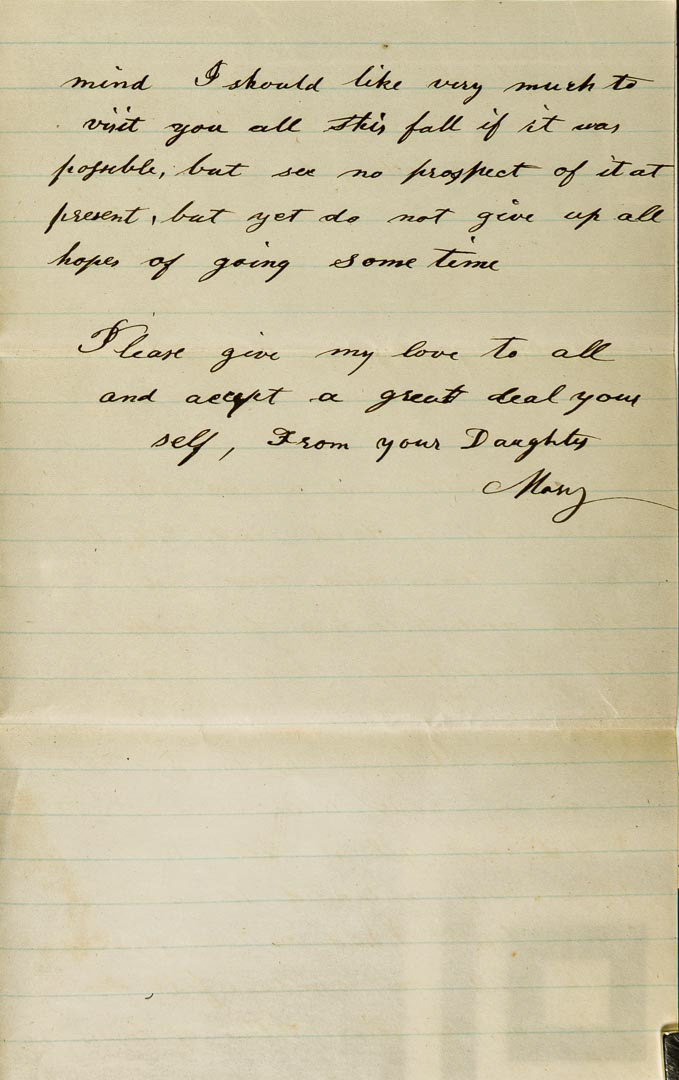 mind I should like very much to
visit you all this fall if it was
possible, but see no prospect of it at
present, but yet do not give up all
hopes of going some time
Please give my love to all
and accept a great deal your
self, From your Daughter
Mary